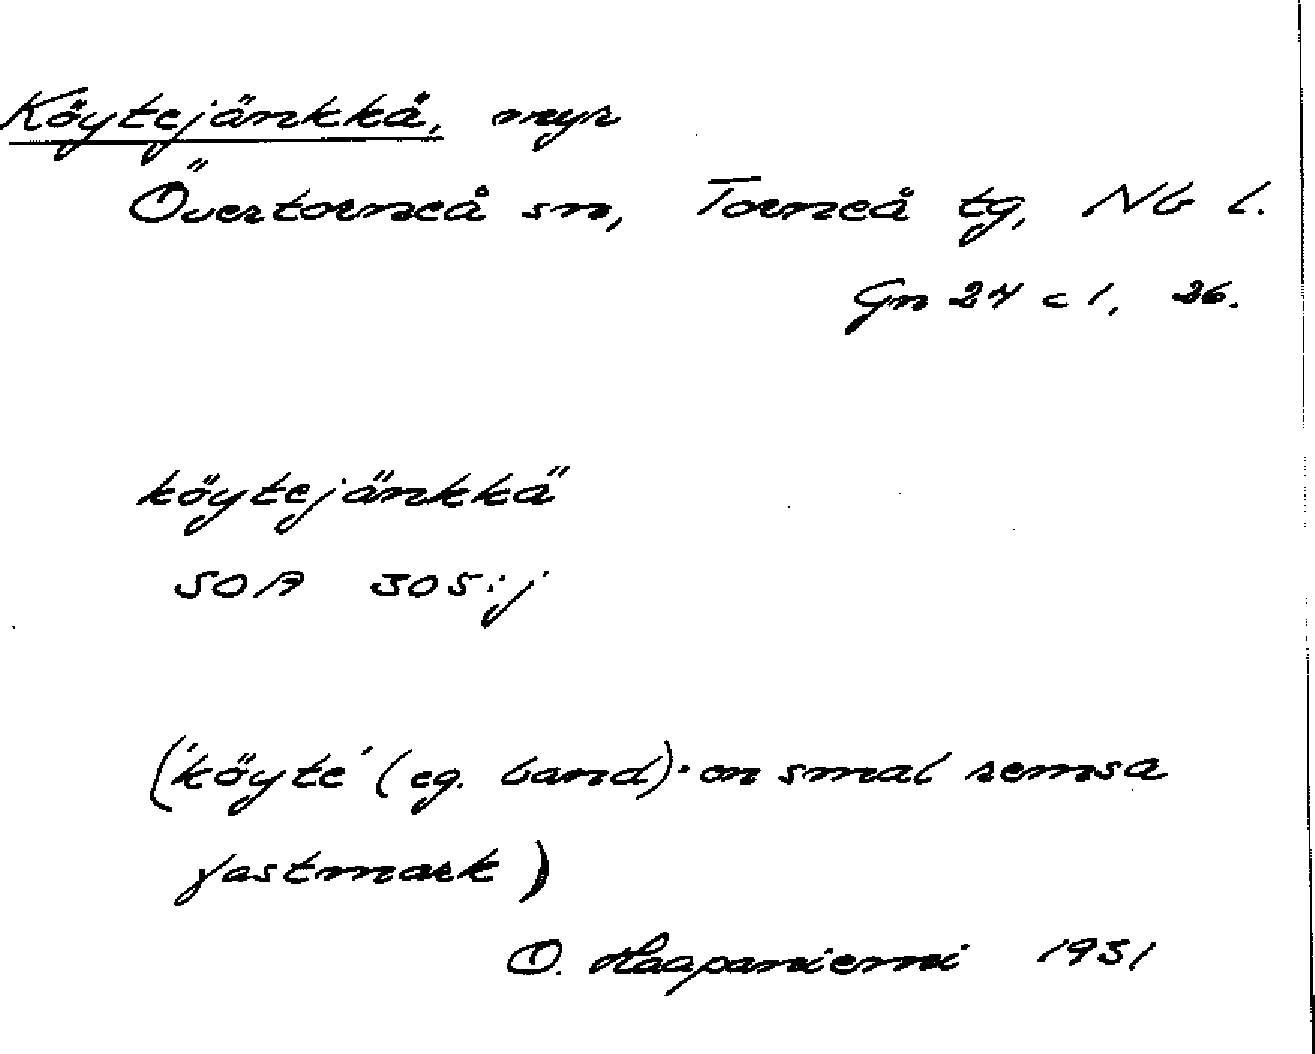 Köytejänkkä, myr
Övertorneå sn, Torneå tg, NB l.
Gn 24 c 1, 26.
köytejänkkä
SOA 305:j
('köyte' (eg. band) · en smal remsa
fastmark)
O. Haapaniemi 1931